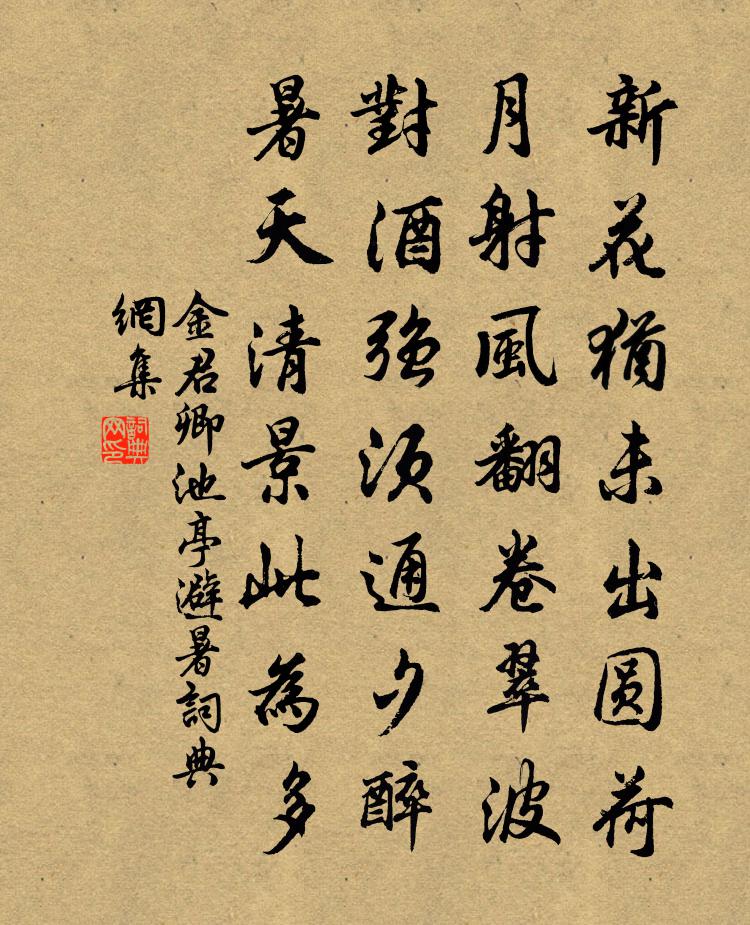 新花猶未出圆荷
月射風翻卷翠波
對酒强須通夕醉
暑天清景此為多
金君卿池亭避暑詞典
網集
詞典網印